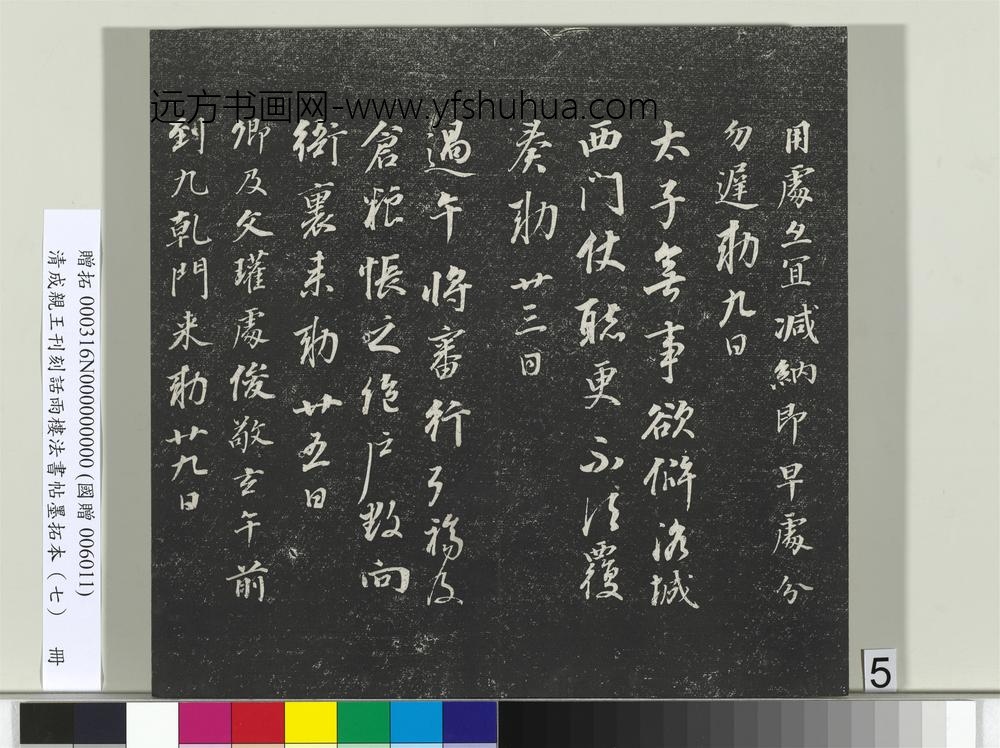 用處亦宜減納即早處分
勿遲勅九日
太子無事欲僻洛城
西门仗聽更不須覆
奏勅廿三日
過午將審行了福及
倉粮帳之絶户數向
衙裏来勅廿五日
卿及文瓘處俊敬玄午前
到九乾門来勅廿九日
远方书画网-www.yfshuhua.com
贈拓 000316N000000000(國贈 006011)
清成親王刊刻話雨樓法書帖墨拓本(七) 冊
5